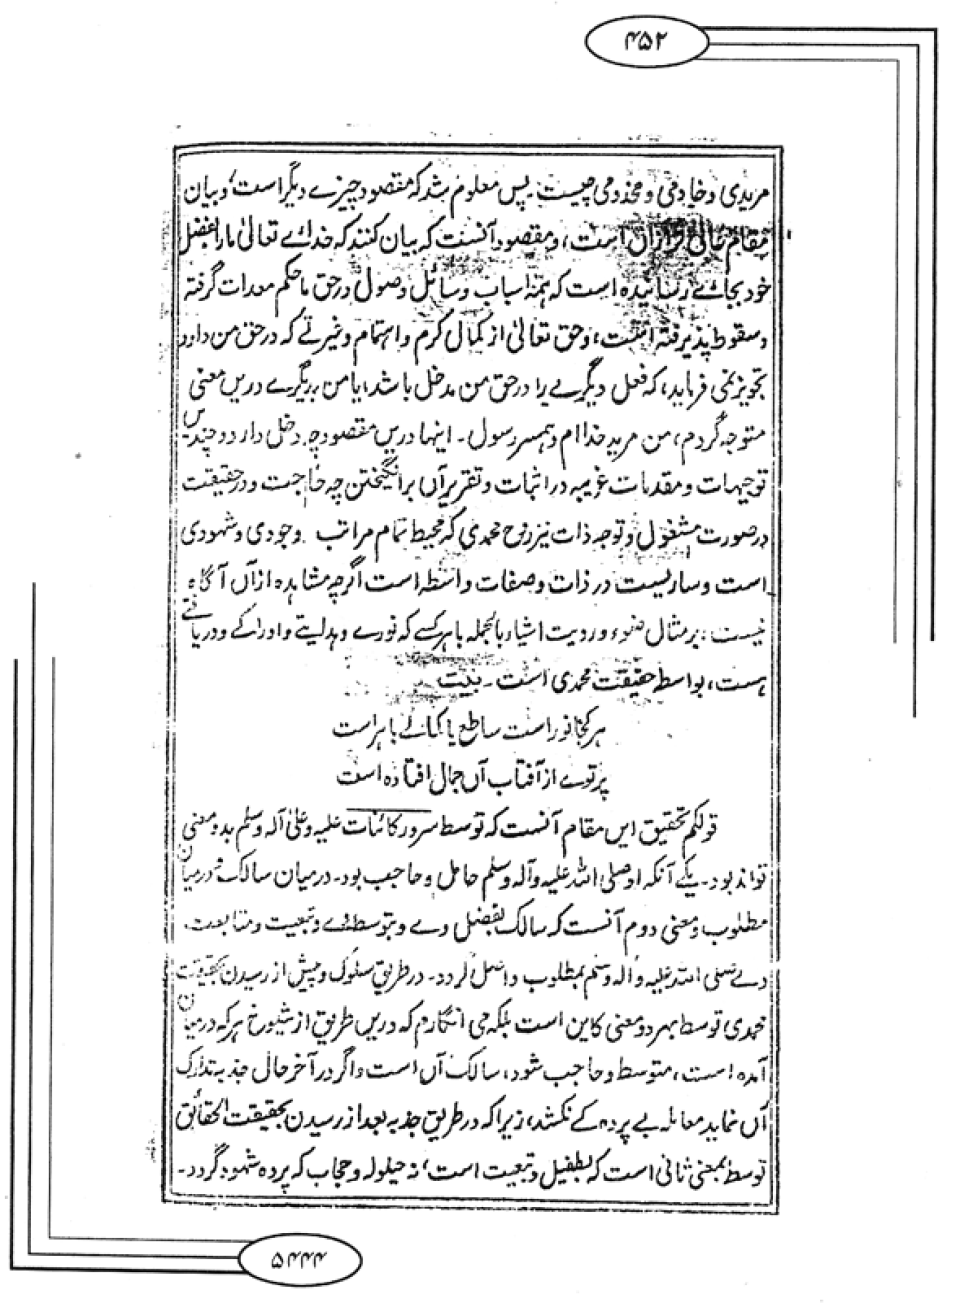 ۴۵۲
مریدی و خادمی و مخدومی چیست۔ پس معلوم شد کہ مقصود چیزے دیگر است، و بیان
مقام عالی تر ازاں است، و مقصود آنست کہ بیان کنند کہ خدائے تعالیٰ مارا بفضل
خود بجائے رسانیدہ است کہ ہمہ اسباب و سائل وصول در حق ما حکم معدات گرفتہ
و سقوط پذیرفتہ است، و حق تعالیٰ از کمال کرم و اہتمام و غیرتے کہ در حق من دارد
تجویز نمی فرماید، کہ فعل دیگرے را در حق من مدخل باشد، یا من بدیگرے دریں معنی
متوجہ گردم، من مرید خدا ام و ہمسر رسول۔ اینہا دریں مقصود چہ دخل دارد و چندیں
توجیہات و مقدمات غریبہ در اثبات و تقریر آں برانگیختن چہ حاجت و در حقیقت
در صورت مشغولی و توجہ ذات نیز روح محمدی کہ محیط تمام مراتب وجودی و شہودی
است و ساریست در ذات و صفات واسطہ است اگرچہ مشاہدہ ازاں آگاہ
نیست، بر مثال ضوء و رویت اشیاء بالجملہ با ہر کسے کہ نورے و ہدایتے و ادراکے و دریافتے
ہست، بواسطہ حقیقت محمدی است۔ بیت
ہر کجا نور است ساطع یا کمالے باہر است
پرتوے از آفتاب آں جمال افتادہ است
قولکم تحقیق ایں مقام آنست کہ توسط سرور کائنات علیہ و علیٰ آلہ وسلم بدو معنی
تواند بود۔ یکے آنکہ او صلی اللہ علیہ وآلہ وسلم حائل و حاجب بود۔ درمیان سالک و درمیان
مطلوب، و معنی دوم آنست کہ سالک بفضل وے و بتوسط وے و تبعیت و متابعت
وے صلی اللہ علیہ وآلہ وسلم بمطلوب واصل گردد۔ در طریق سلوک و پیش از رسیدن بحقیقت
محمدی توسط بہر دو معنی کاین است بلکہ می انگارم کہ دریں طریق از شیوخ ہر کہ درمیان
آمدہ است، متوسط و حاجب شود، سالک آں است و اگر در آخر حال جذبہ تدارک
آں نماید معاملہ بے پردہ کے نکشد، زیرا کہ در طریق جذبہ بعد از رسیدن بحقیقت الحقائق
توسط بمعنی ثانی است کہ بطفیل و تبعیت است، نہ حیلولہ و حجاب کہ پردہ شہود گردد۔
۵۴۴۴